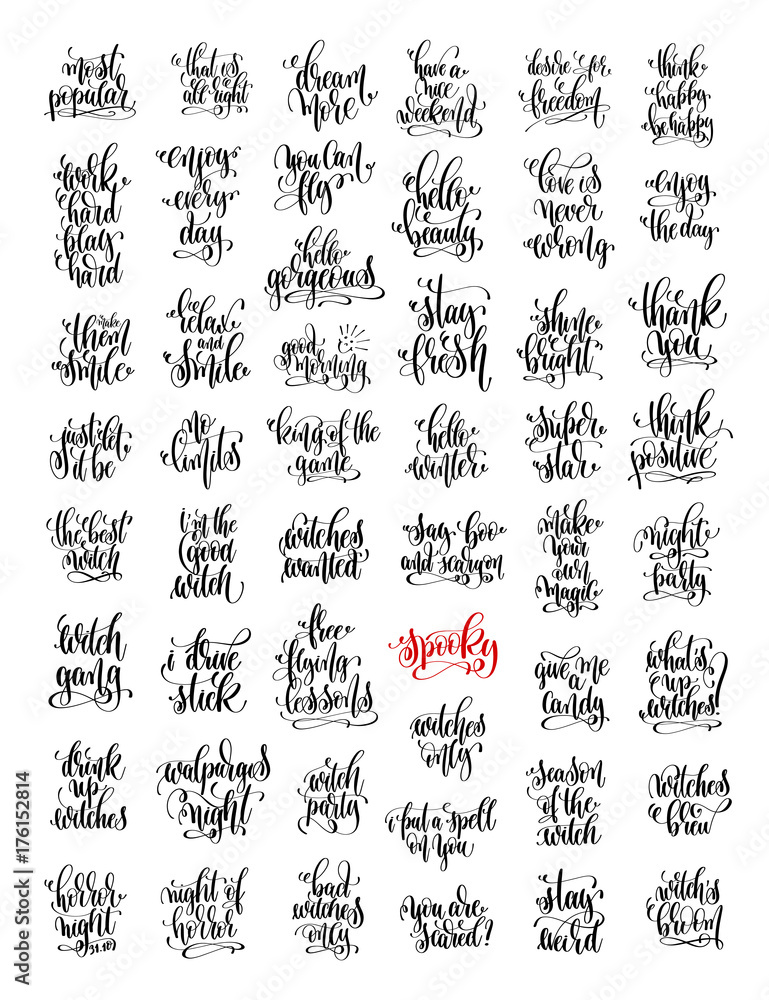 most
popular
that is
all right
dream
more
have a
nice
weekend
desire for
freedom
think
happy
be happy
work
hard
play
hard
enjoy
every
day
you can
fly
hello
beauty
love is
never
wrong
enjoy
the day
hello
gorgeous
make
them
smile
relax
and
smile
good
morning
stay
fresh
shine
bright
thank
you
just let
it be
no
limits
king of the
game
hello
winter
super
star
think
positive
the best
witch
i'm the
good
witch
witches
wanted
say boo
and scary on
make
your
own
magic
night
party
witch
gang
i drive
stick
free
flying
lessons
spooky
give me
a
candy
what's
up
witches?
witches
only
drink
up
witches
walpurgis
night
witch
party
i put a spell
on you
season
of the
witch
witches
brew
horror
night
31.10
night of
horror
bad
witches
only
you are
scared?
stay
weird
witch's
broom
Adobe Stock | #176152814
Adobe Stock